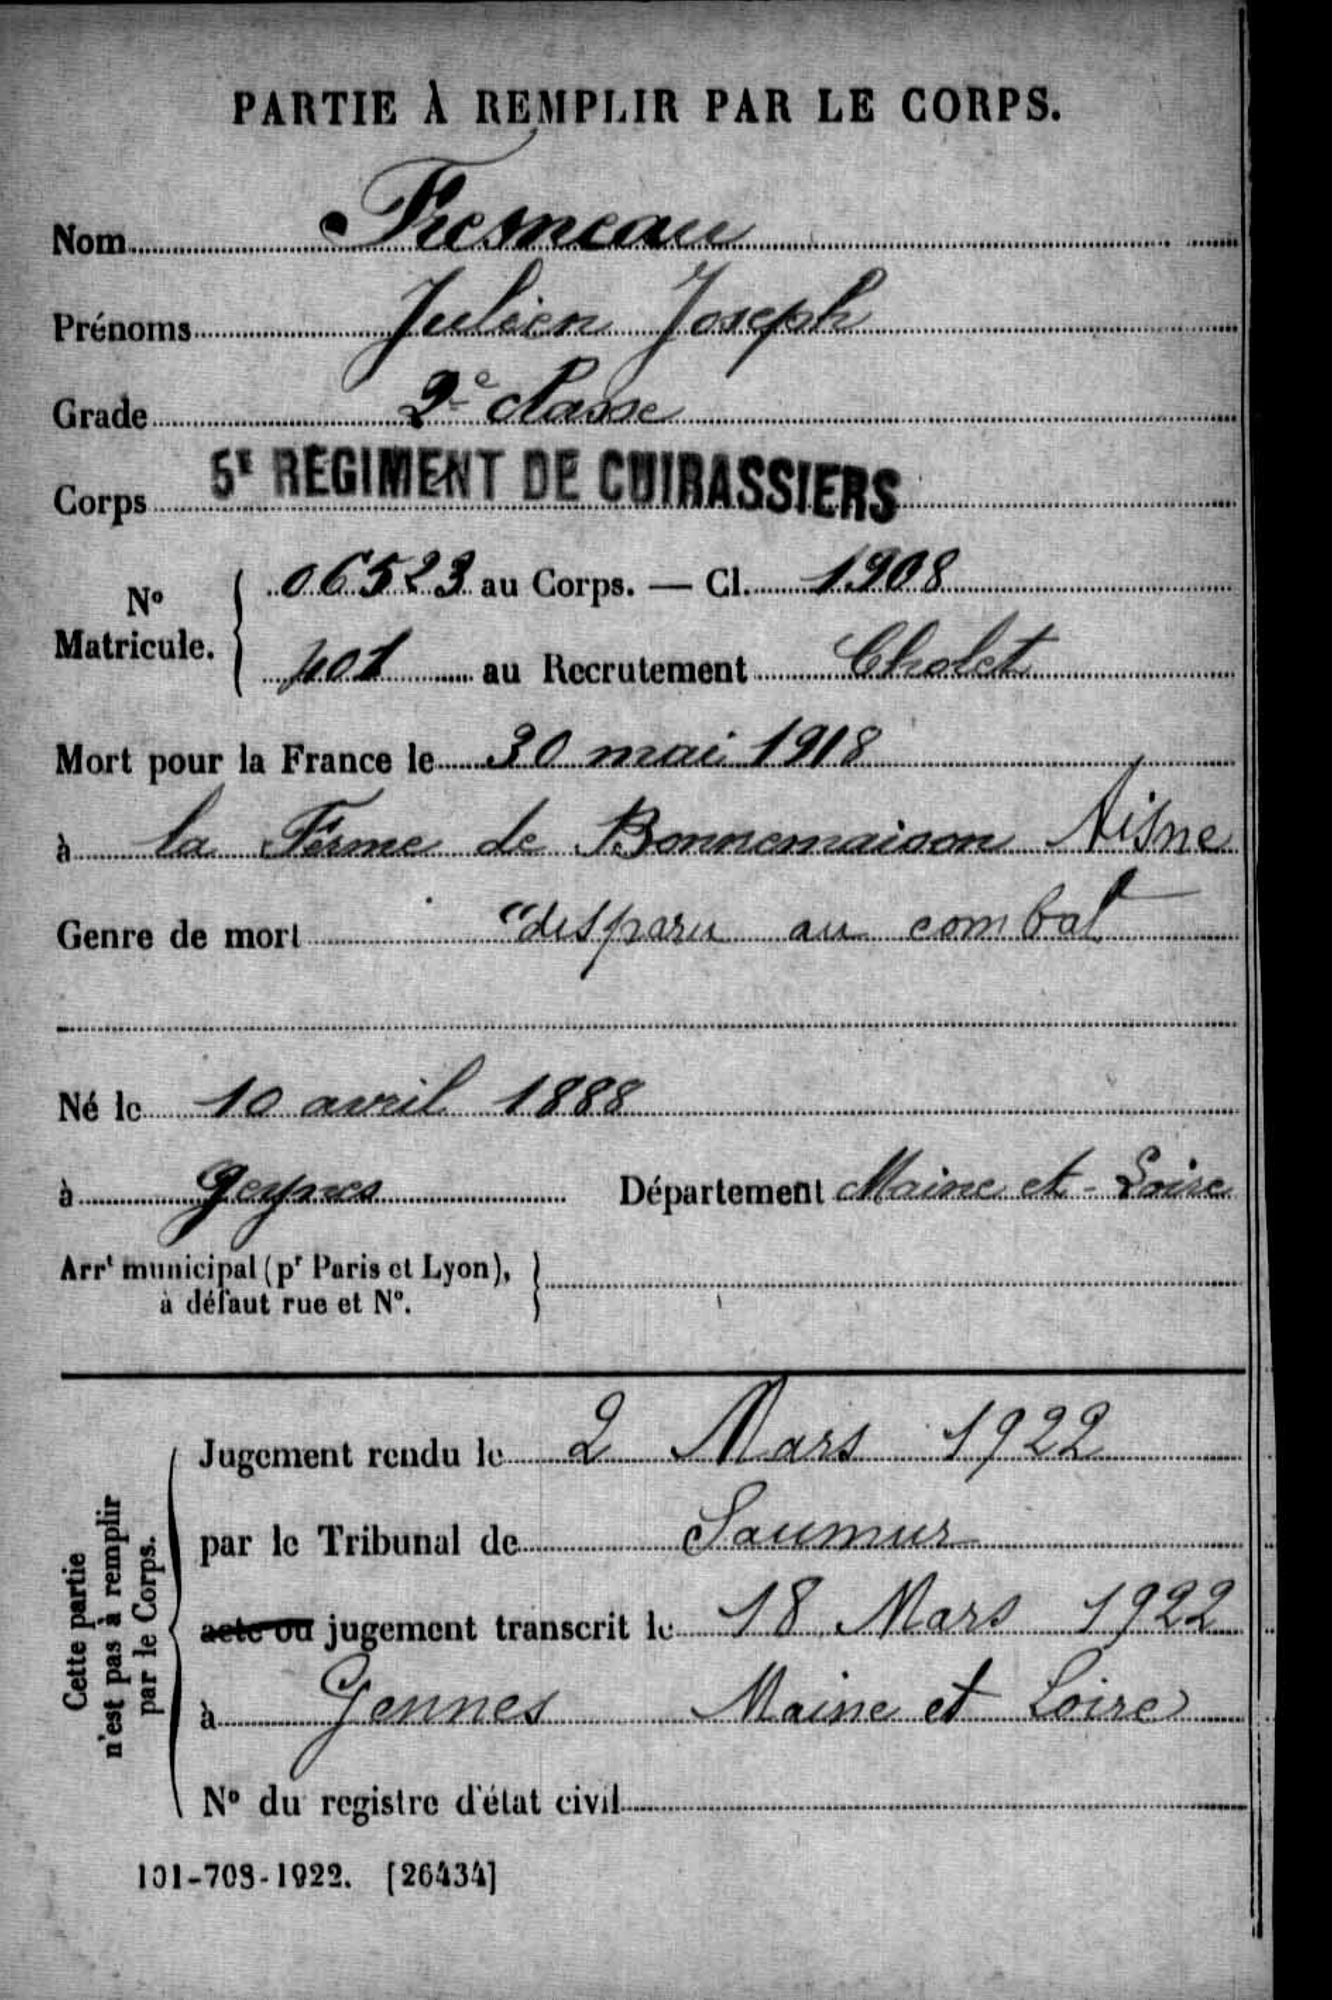 PARTIE À REMPLIR PAR LE CORPS.
Nom Fresneau
Prénoms Julien Joseph
Grade 2e classe
Corps 5E RÉGIMENT DE CUIRASSIERS
No Matricule. 06523 au Corps. — Cl. 1908
401 au Recrutement Cholet
Mort pour la France le 30 mai 1918
à la Ferme de Bonnemaison Aisne
Genre de mort "disparu au combat
Né le 10 avril 1888
à Gennes Département Maine et-Loire
Arrt municipal (pr Paris et Lyon),
à défaut rue et No.
Cette partie
n'est pas à remplir
par le Corps.
Jugement rendu le 2 Mars 1922
par le Tribunal de Saumur
acte ou jugement transcrit le 18 Mars 1922
à Gennes Maine et Loire
No du registre d'état civil
101-708-1922. [26434]